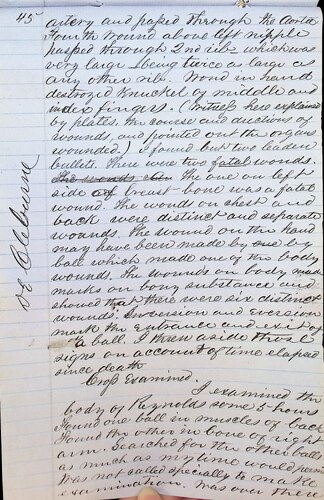 45
artery and passed through the Aorta
Fourth wound above left nipple
passed through 2nd rib which was
very large being twice as large as
any other rib. Wond in hand
destroyed knuckel of middle and
index fingers. (Witness here explained
by plates, the course and directions of
wounds, and pointed out the organs
wounded.) I found but two leaden
bullets. There were two fatal wounds.
The one on left
side of breast-bone was a fatal
wound. The wounds on chest and
back were distinct and separate
wounds. The wound on the hand
may have been made by one by
ball which made one of the body
wounds. The wounds on body made
marks on bony substance and
showed that there were six distinct
wounds. Inversion and eversion
mark the entrance and exit of
a ball. I threw aside those
signs on account of time elapsed
since death
Cross Examined.
I examined the
body of Reynolds some 5 hours
Found one ball in muscles of back
Found the other in bone of right
arm. Searched for the other balls
as much as my time would permit
Was not called specially to make
examination. Was over there
De Cleburne